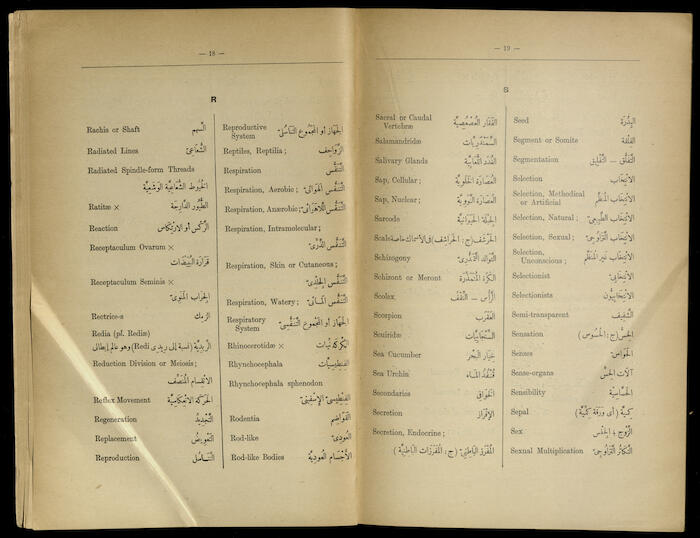 — 18 —
R
Rachis or Shaft السَّهم
Radiated Lines الشُّعاعىّ
Radiated Spindle-form Threads
الخُيوط الشُّعاعيَّة الوَشيعيَّة
Ratitæ × الطُّيور الدَّارِجَة
Reaction الرِّكْس أو الارْتِكاس
Receptaculum Ovarum ×
قرَارَة البُيَيْضات
Receptaculum Seminis ×
الجِراب المَنَوىّ
Rectrice-s الرِّمك
Redia (pl. Rediæ)
الرِّيديَّة (نسبة إلى ريدى Redi) وهو عالم إيطالى
Reduction Division or Meiosis;
الانقِسام المُنَصِّف
Reflex Movement الحَركة الانعِكاسيَّة
Regeneration التَّجديد
Replacement التَّعويض
Reproduction التَّناسُل
Reproductive الجِهَاز أو المَجْمُوع التَّناسُلىّ
System
Reptiles, Reptilia; الزَّواحِف
Respiration التَّنَفُّس
Respiration, Aerobic; التَّنَفُّس الهَوائىّ
Respiration, Anærobic; التَّنَفُّس اللاهَوائىّ
Respiration, Intramolecular;
التَّنَفُّس الذَّرِّىّ
Respiration, Skin or Cutaneous;
التَّنَفُّس الجِلدىّ
Respiration, Watery; التَّنَفُّس المَـائىّ
Respiratory الجِهَاز أو المَجمُوع التَّنَفُّسىّ
System
Rhinocerotidæ × الكَركَدنِّيات
Rhynchocephala الفِنطِيسِيَّات
Rhynchocephala sphenodon
الفِنطِيسىّ الإسْفِينىّ
Rodentia القَوَاضِم
Rod-like العُودِىّ
Rod-like Bodies الأجْسَام العُودِيَّة
— 19 —
S
Sacral or Caudal الفَقَار العُصْعُصِيَّة
Vertebræ
Salamandridæ السَّمَنْدَريَّات
Salivary Glands الغُدَد اللُّعَابِيَّة
Sap, Cellular; العُصَارَة الخَلَوِيَّة
Sap, Nuclear; العُصَارَة النَّوَوِيَّة
Sarcode الجِبْلَة الحَيَوَانِيَّة
Scale الحَرْشَف (ج: الحَرَاشِف) فى الأسماك خاصة
Schizogony التَّوَالُد
Schizont or Meront الكُرَة
Scolex الرَّأس –
Scorpion العَقْرَب
Sciuridæ السِّنْجَابِيَّات
Sea Cucumber خِيَار البَحْر
Sea Urchin قُنْفُذ المَـاء
Secondaries الخَوَافى
Secretion الإفْرَاز
Secretion, Endocrine;
المُفْرَز البَاطِنىّ (ج: المُفْرَزَات البَاطِنِيَّة)
Seed البِذْرَة
Segment or Somite الفِلْقَة
Segmentation التَّفَلُّق – التَّفْلِيق
Selection الانْتِخَاب
Selection, Methodical الانْتِخَاب المُنَظَّم
or Artificial
Selection, Natural; الانْتِخَاب الطَّبِيعىّ
Selection, Sexual; الانْتِخَاب التَّزَاوُجىّ
Selection, الانْتِخَاب غَير المُنَظَّم
Unconscious;
Selectionist الانْتِخَابىّ
Selectionists الانْتِخَابِيُّون
Semi-transparent الشَّفِيف
Sensation الحِسّ (ج: الحُسُوس)
Seizes الحَوَاسّ
Sense-organs آلَات الحِسّ
Sensibility الحَسَّاسِيَّة
Sepal كِمِّيَّة (أى وَرَقَة كِمِّيَّة)
Sex الزَّوج؛ الجِنْس
Sexual Multiplication التَّكَاثُر التَّزَاوُجىّ